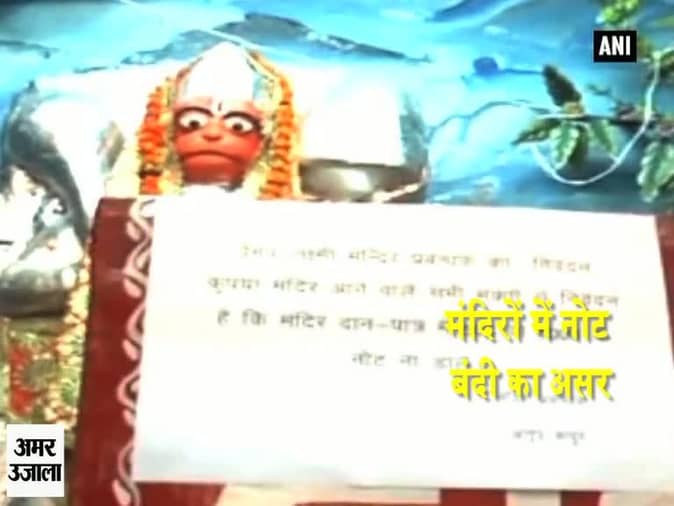 ANI
मन्दिर प्रबन्धक का निवेदन
कृपया मंदिर आने वाले सभी भक्तों से निवेदन
है कि मंदिर दान-पात्र
नोट ना डालें
मंदिरों में नोट
बंदी का असर
अमर
उजाला